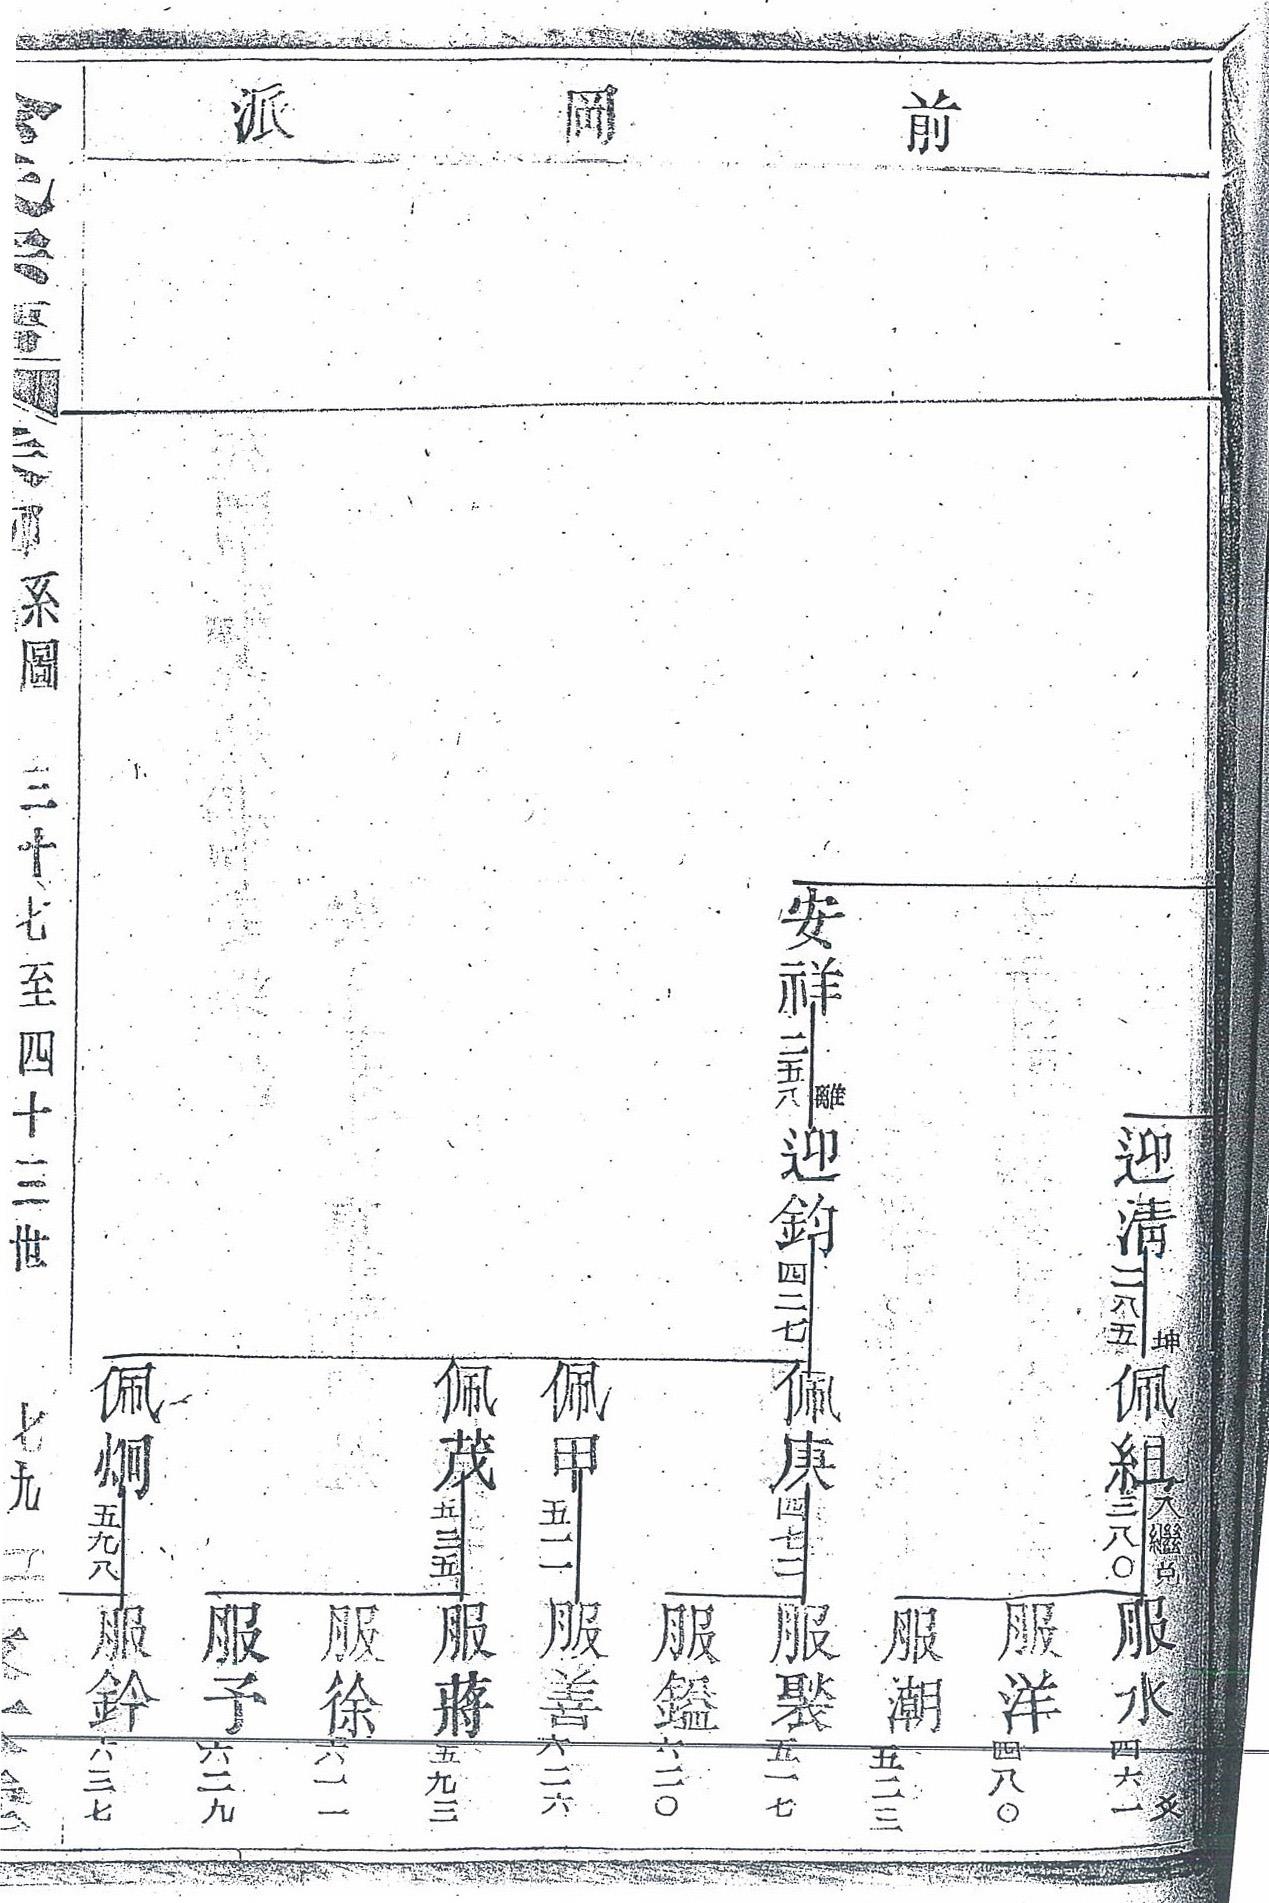 前岡派
迎清 二八五 坤
佩組 三八〇 入繼兑
服水 四六一 爻
服洋 四八〇
服潮 五二三
安祥 二五八 離
迎鈞 四二七
佩庚 四七二
服褧 五一七
服鎰 六二〇
佩甲 五一一
服善 六二六
佩茂 五三五
服蔣 五九三
服徐 六一一
服予 六二九
佩炯 五九八
服鈐 六三七
系圖 三十七至四十三世 七九